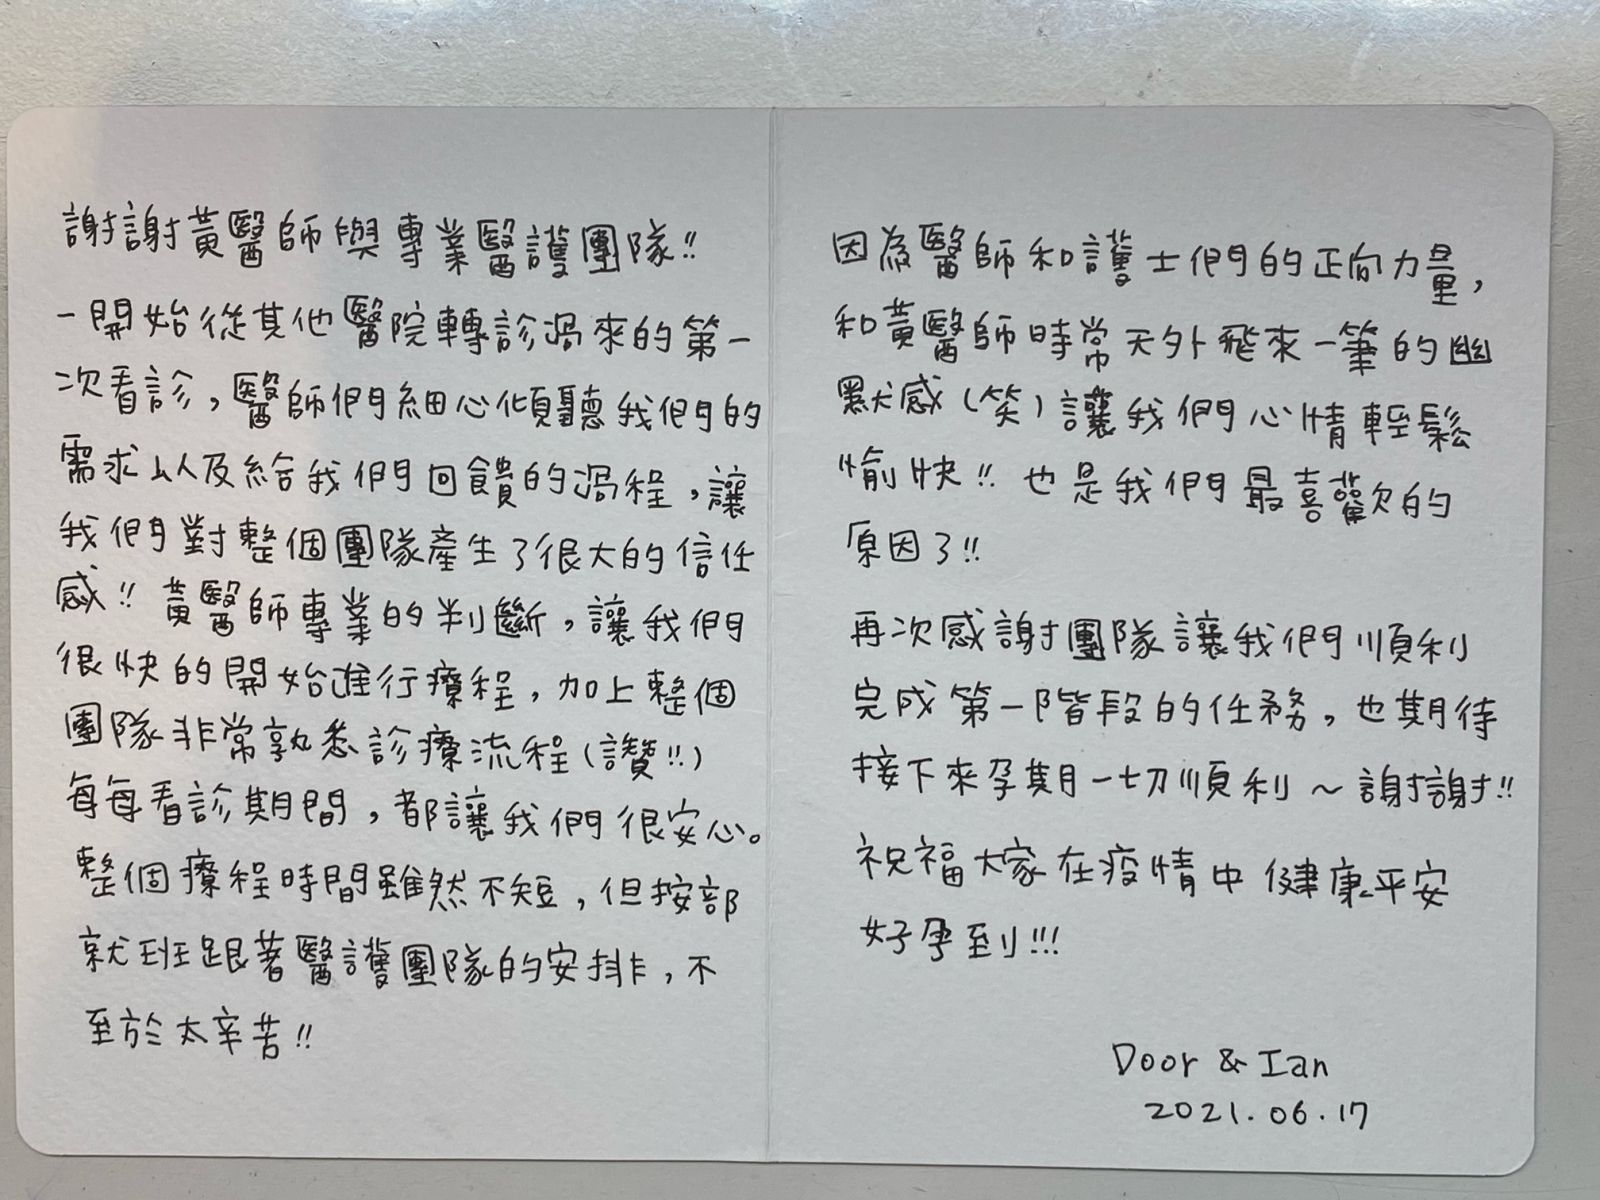 謝謝黃醫師與專業醫護團隊!!
一開始從其他醫院轉診過來的第一
次看診，醫師們細心傾聽我們的
需求以及給我們回饋的過程，讓
我們對整個團隊產生了很大的信任
感!! 黃醫師專業的判斷，讓我們
很快的開始進行療程，加上整個
團隊非常熟悉診療流程(讚!!)
每每看診期間，都讓我們很安心。
整個療程時間雖然不短，但按部
就班跟著醫護團隊的安排，不
至於太辛苦!!
因為醫師和護士們的正向力量，
和黃醫師時常天外飛來一筆的幽
默感(笑)讓我們心情輕鬆
愉快!! 也是我們最喜歡的
原因了!!
再次感謝團隊讓我們順利
完成第一階段的任務，也期待
接下來孕期一切順利～謝謝!!
祝福大家在疫情中健康平安
好孕到!!!
Door & Ian
2021.06.17